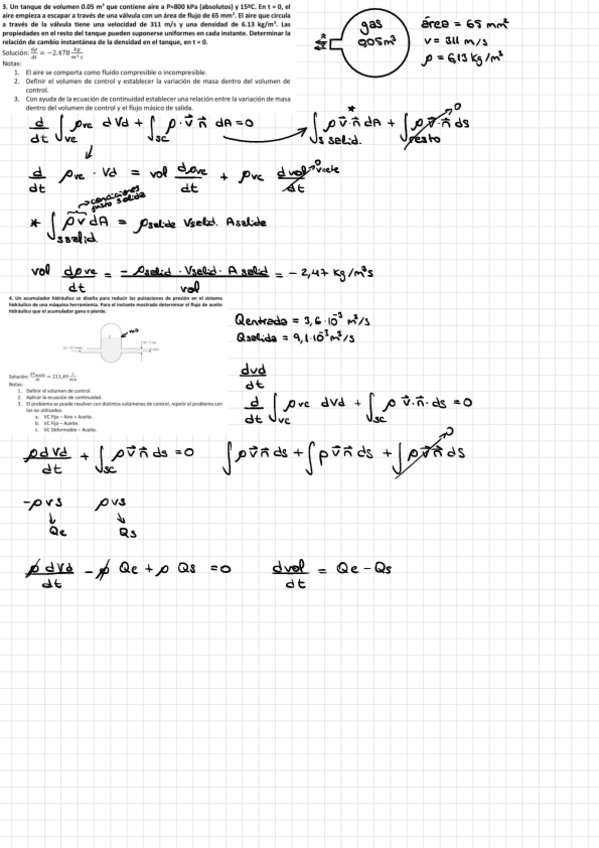 3. Un tanque de volumen 0.05 m³ que contiene aire a P=800 kPa (absolutos) y 15ºC. En t = 0, el
aire empieza a escapar a través de una válvula con un área de flujo de 65 mm². El aire que circula
a través de la válvula tiene una velocidad de 311 m/s y una densidad de 6.13 kg/m³. Las
propiedades en el resto del tanque pueden suponerse uniformes en cada instante. Determinar la
relación de cambio instantánea de la densidad en el tanque, en t = 0.
Solución: dρ/dt = −2.478 kg/m³s
Notas:
1. El aire se comporta como fluido compresible o incompresible.
2. Definir el volumen de control y establecer la variación de masa dentro del volumen de
control.
3. Con ayuda de la ecuación de continuidad establecer una relación entre la variación de masa
dentro del volumen de control y el flujo másico de salida.
gas
0,05m³
área = 65 mm²
v = 311 m/s
ρ = 6,13 kg/m³
d/dt ∫vc ρvc dVd + ∫sc ρ · v⃗ n⃗ dA = 0
* ∫s salid. ρ v⃗ n⃗ dA + ∫resto ρ v⃗ · n⃗ ds → 0
d/dt ρvc · Vd = vol dρvc/dt + ρvc dvol/dt → 0 vcte
→ condiciones justo salida
* ∫ssalid. ρ v dA = ρsalida Vsalid. Asalida
vol dρvc/dt = −ρsalid · Vsalid · A salid / vol = −2,47 kg/m³s
4. Un acumulador hidráulico se diseña para reducir las pulsaciones de presión en el sistema
hidráulico de una máquina herramienta. Para el instante mostrado determinar el flujo de aceite
hidráulico que el acumulador gana o pierde.
Notas:
1. Definir el volumen de control.
2. Aplicar la ecuación de continuidad.
3. El problema se puede resolver con distintos volúmenes de control, repetir el problema con
los no utilizados:
a. VC Fijo – Aire + Aceite.
b. VC Fijo – Aceite.
c. VC Deformable – Aceite.
Qentrada = 3,6·10⁻³ m³/s
Qsalida = 9,1·10⁻³ m³/s
dvd/dt
d/dt ∫vc ρvc dVd + ∫sc ρ v⃗ · n⃗ · ds = 0
ρdVd/dt + ∫sc ρ v⃗ n⃗ ds = 0
∫ρ v⃗ n⃗ ds + ∫ρ v⃗ n⃗ ds + ∫ρ v⃗ n⃗ ds → 0
-ρvs ρvs
↓ ↓
Qe Qs
ρ dVd/dt − ρ Qe + ρ Qs = 0
dvol/dt = Qe − Qs